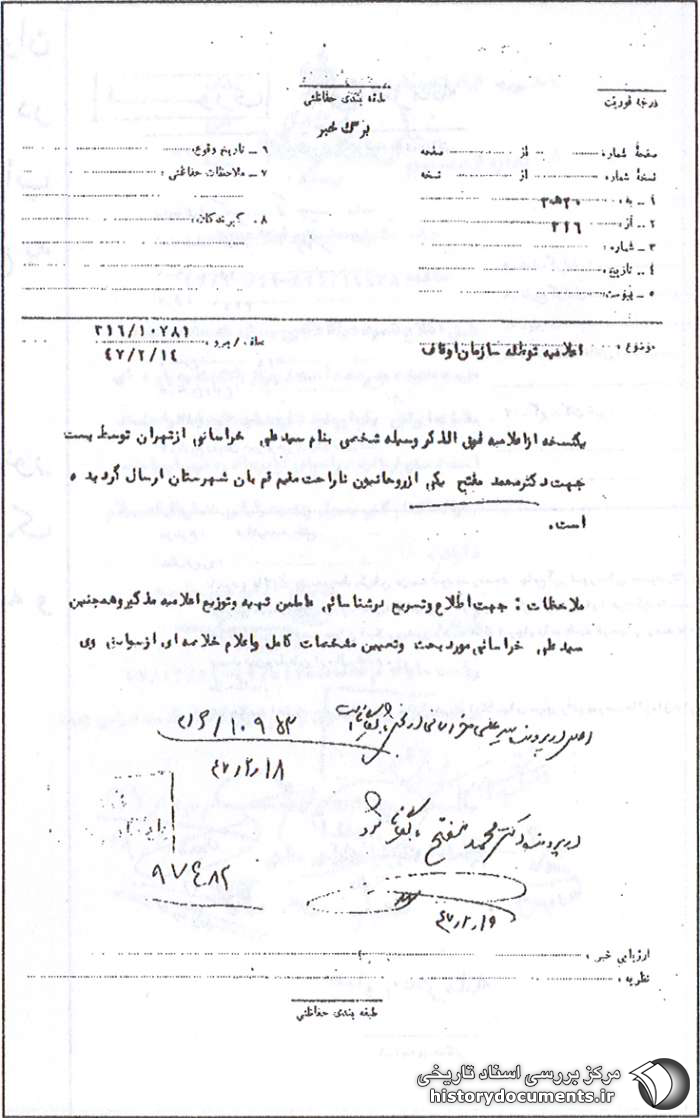 درجه فوریت
طبقه بندی حفاظتی
برگ خبر
صفحهٔ شماره از صفحه
نسخهٔ شماره از نسخه
۱ ــ به :
۲ ــ از : ۳۱۶
۳ ــ شماره :
۴ ــ تاریخ :
۵ ــ پیوست :
۶ ــ تاریخ وقوع :
۷ ــ ملاحظات حفاظتی :
۸ ــ گیرندگان :
موضوع : اعلامیه توطئه سازمان اوقاف
عطف / پیرو : ۳۱۶/۱۰۷۸۱
۴۷/۲/۱۴
یکنسخه از اعلامیه فوق الذکر وسیله شخصی بنام سیدعلی خراسانی ازتهران توسط پست
جهت دکترمحمد مفتح یکی ازروحانیون ناراحت مقیم قم بان شهرستان ارسال گردیده
است.
ملاحظات : جهت اطلاع وتسریع درشناسائی عاملین تهیه وتوزیع اعلامیه مذکور وهمچنین
سیدعلی خراسانی مورد بحث وتعیین مشخصات کامل واعلام خلاصه ای ازسوابق وی
۳۱۶/۱۰۹۶۳
۴۷/۲/۱۸
در پرونده دکتر محمد مفتح بایگانی شود
۹۷۴۸۲
۴۷/۲/۱۹
ارزیابی خبر :
نظریه :
طبقه بندی حفاظتی
مرکز بررسی اسناد تاریخی
historydocuments.ir